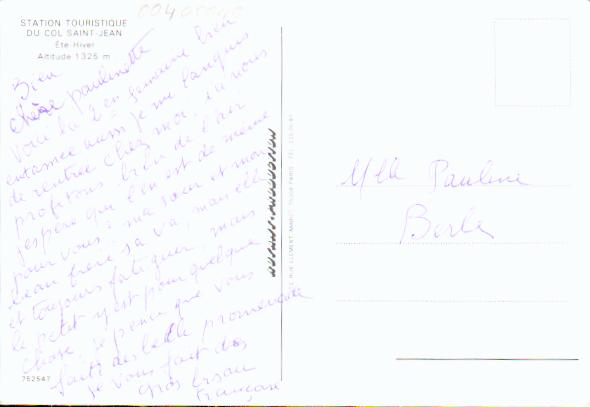 00400040
STATION TOURISTIQUE
DU COL SAINT-JEAN
Été Hiver
Altitude 1325 m
Bien
chère paulinette
Voici la 2e semaine bien
entamée aussi je me languis
de rentrée chez moi, ici nous
profitons bien de l'air
j'espère que l'en est de même
pour vous. ma sœur et mon
beau frère sa va, mais elle
et toujours fatiguer, mais
le petit y est pour quelque
chose, je pense que vous
faite des belle promenade
je vous fait des
gros bisou
françoise
752547
Mlle Pauline
Berle